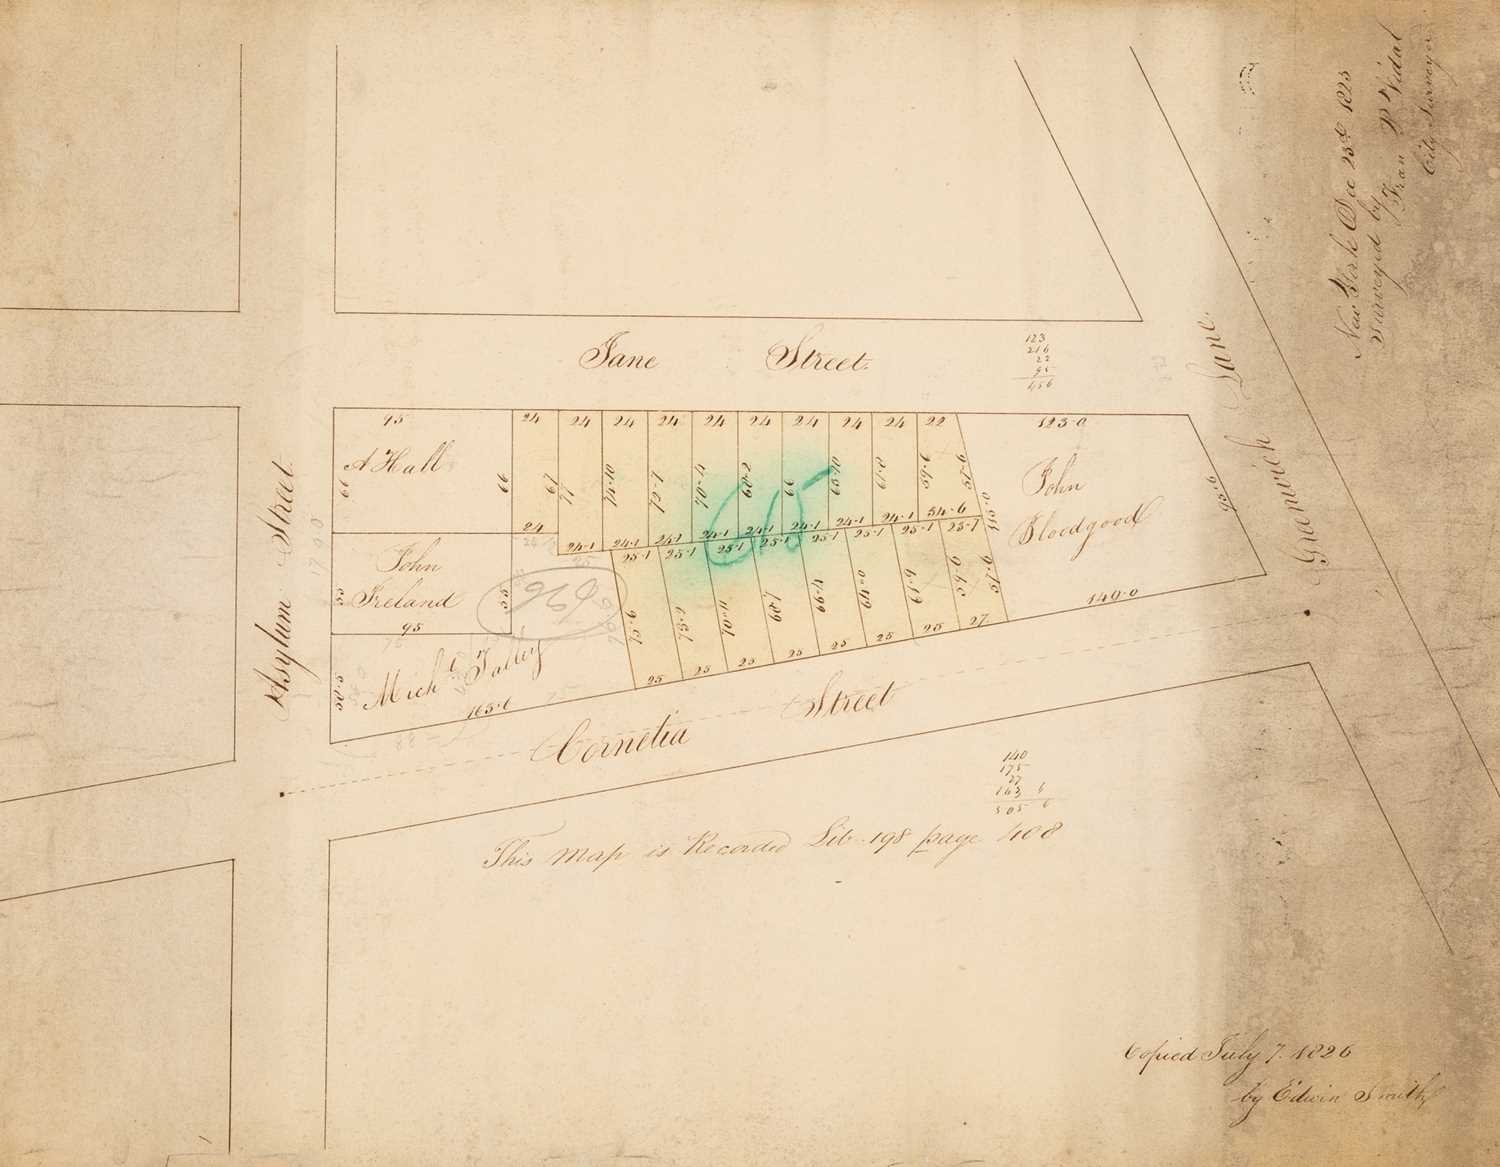 New York Dec 23d 1825
Surveyed by
Fran P Vidal
City Surveyor
Jane Street.
123
216
22
95
456
Greenwich Lane.
Asylum Street
95
24 24 24 24 24 24 24 24 24 22
123-0
A Hall
66
66
67
77
74-10
72-7
70-4
68-2
66
63-10
61-8
59-6
57-6
115-0
95-6
John
Bloodgood
24
24-1 24-1 24-1 24-1 24-1 24-1 24-1 24-1 34-6
25-1 25-1 25-1 25-1 25-1 25-1 25-1 25-1
John
Ireland
55
55
95
636
75-6
73-1
70-11
68-7
66-4
64-0
61-9
59-6
57-6
Michl Falley
58-5
163-6
25 25 25 25 25 25 25 27
140-0
Cornelia Street
65
140
175
27
163 6
505 6
This map is Recorded Lib. 198 page 408
Copied July 7. 1826
by Edwin Smith